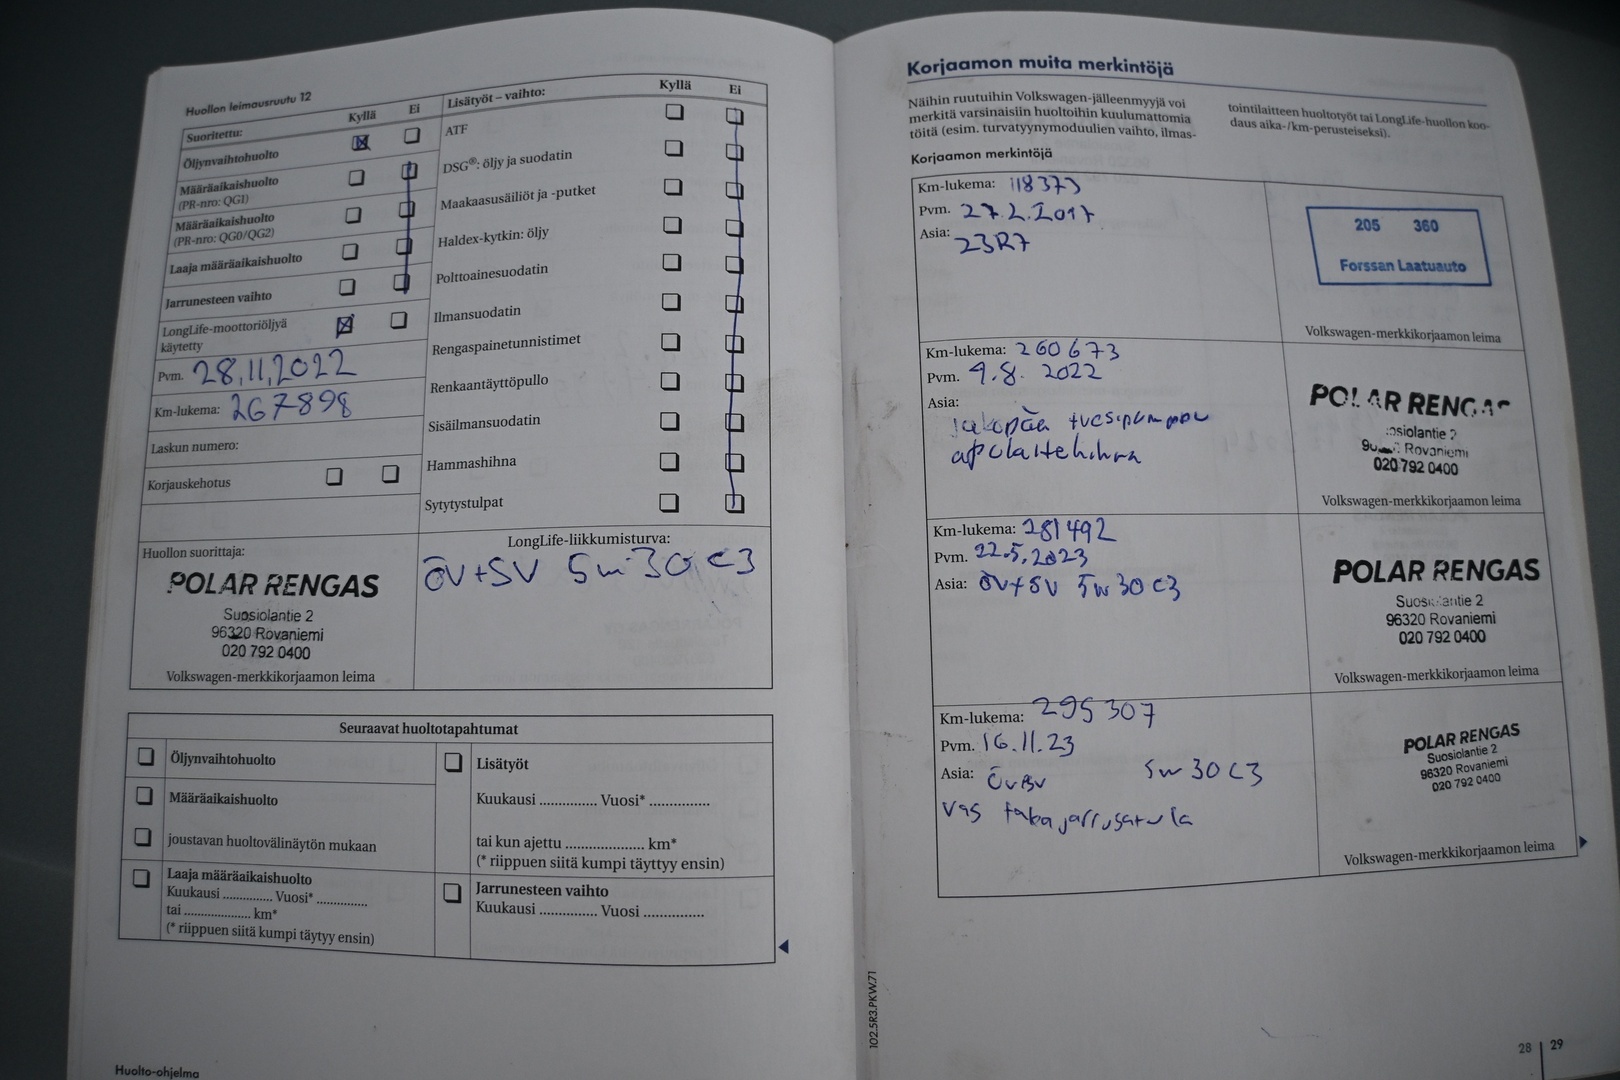 Huollon leimausruutu 12
Suoritettu: Kyllä Ei
Öljynvaihtohuolto
Määräaikaishuolto
(PR-nro: QG1)
Määräaikaishuolto
(PR-nro: QG0/QG2)
Laaja määräaikaishuolto
Jarrunesteen vaihto
LongLife-moottoriöljyä
käytetty
Pvm. 28,11,2022
Km-lukema: 267898
Laskun numero:
Korjauskehotus
Lisätyöt – vaihto: Kyllä Ei
ATF
DSG®: öljy ja suodatin
Maakaasusäiliöt ja -putket
Haldex-kytkin: öljy
Polttoainesuodatin
Ilmansuodatin
Rengaspainetunnistimet
Renkaantäyttöpullo
Sisäilmansuodatin
Hammashihna
Sytytystulpat
Huollon suorittaja:
POLAR RENGAS
Suosiolantie 2
96320 Rovaniemi
020 792 0400
Volkswagen-merkkikorjaamon leima
LongLife-liikkumisturva:
ÖV+SV 5w30 C3
Seuraavat huoltotapahtumat
Öljynvaihtohuolto
Määräaikaishuolto
joustavan huoltovälinäytön mukaan
Laaja määräaikaishuolto
Kuukausi .............. Vuosi* ..............
tai .................... km*
(* riippuen siitä kumpi täytyy ensin)
Lisätyöt
Kuukausi .............. Vuosi* ...............
tai kun ajettu .................... km*
(* riippuen siitä kumpi täyttyy ensin)
Jarrunesteen vaihto
Kuukausi .............. Vuosi ...............
Huolto-ohjelma
Korjaamon muita merkintöjä
Näihin ruutuihin Volkswagen-jälleenmyyjä voi
merkitä varsinaisiin huoltoihin kuulumattomia
töitä (esim. turvatyynymoduulien vaihto, ilmas-
tointilaitteen huoltotyöt tai LongLife-huollon koo-
daus aika-/km-perusteiseksi).
Korjaamon merkintöjä
Km-lukema: 118373
Pvm. 27.2.2017
Asia:
23R7
205 360
Forssan Laatuauto
Volkswagen-merkkikorjaamon leima
Km-lukema: 260673
Pvm. 9.8. 2022
Asia:
jakopää +vesipumppu
apulaitehihna
POLAR RENGAS
Suosiolantie 2
Rovaniemi
020 792 0400
Volkswagen-merkkikorjaamon leima
Km-lukema: 281492
Pvm. 22.5.2023
Asia: ÖV+SV 5w30 C3
POLAR RENGAS
Suosiolantie 2
96320 Rovaniemi
020 792 0400
Volkswagen-merkkikorjaamon leima
Km-lukema: 295307
Pvm. 16.11.23
Asia: 5w30 C3
vas takajarrusatula
POLAR RENGAS
Suosiolantie 2
96320 Rovaniemi
020 792 0400
Volkswagen-merkkikorjaamon leima
102.5R3.PKW.71
28 29